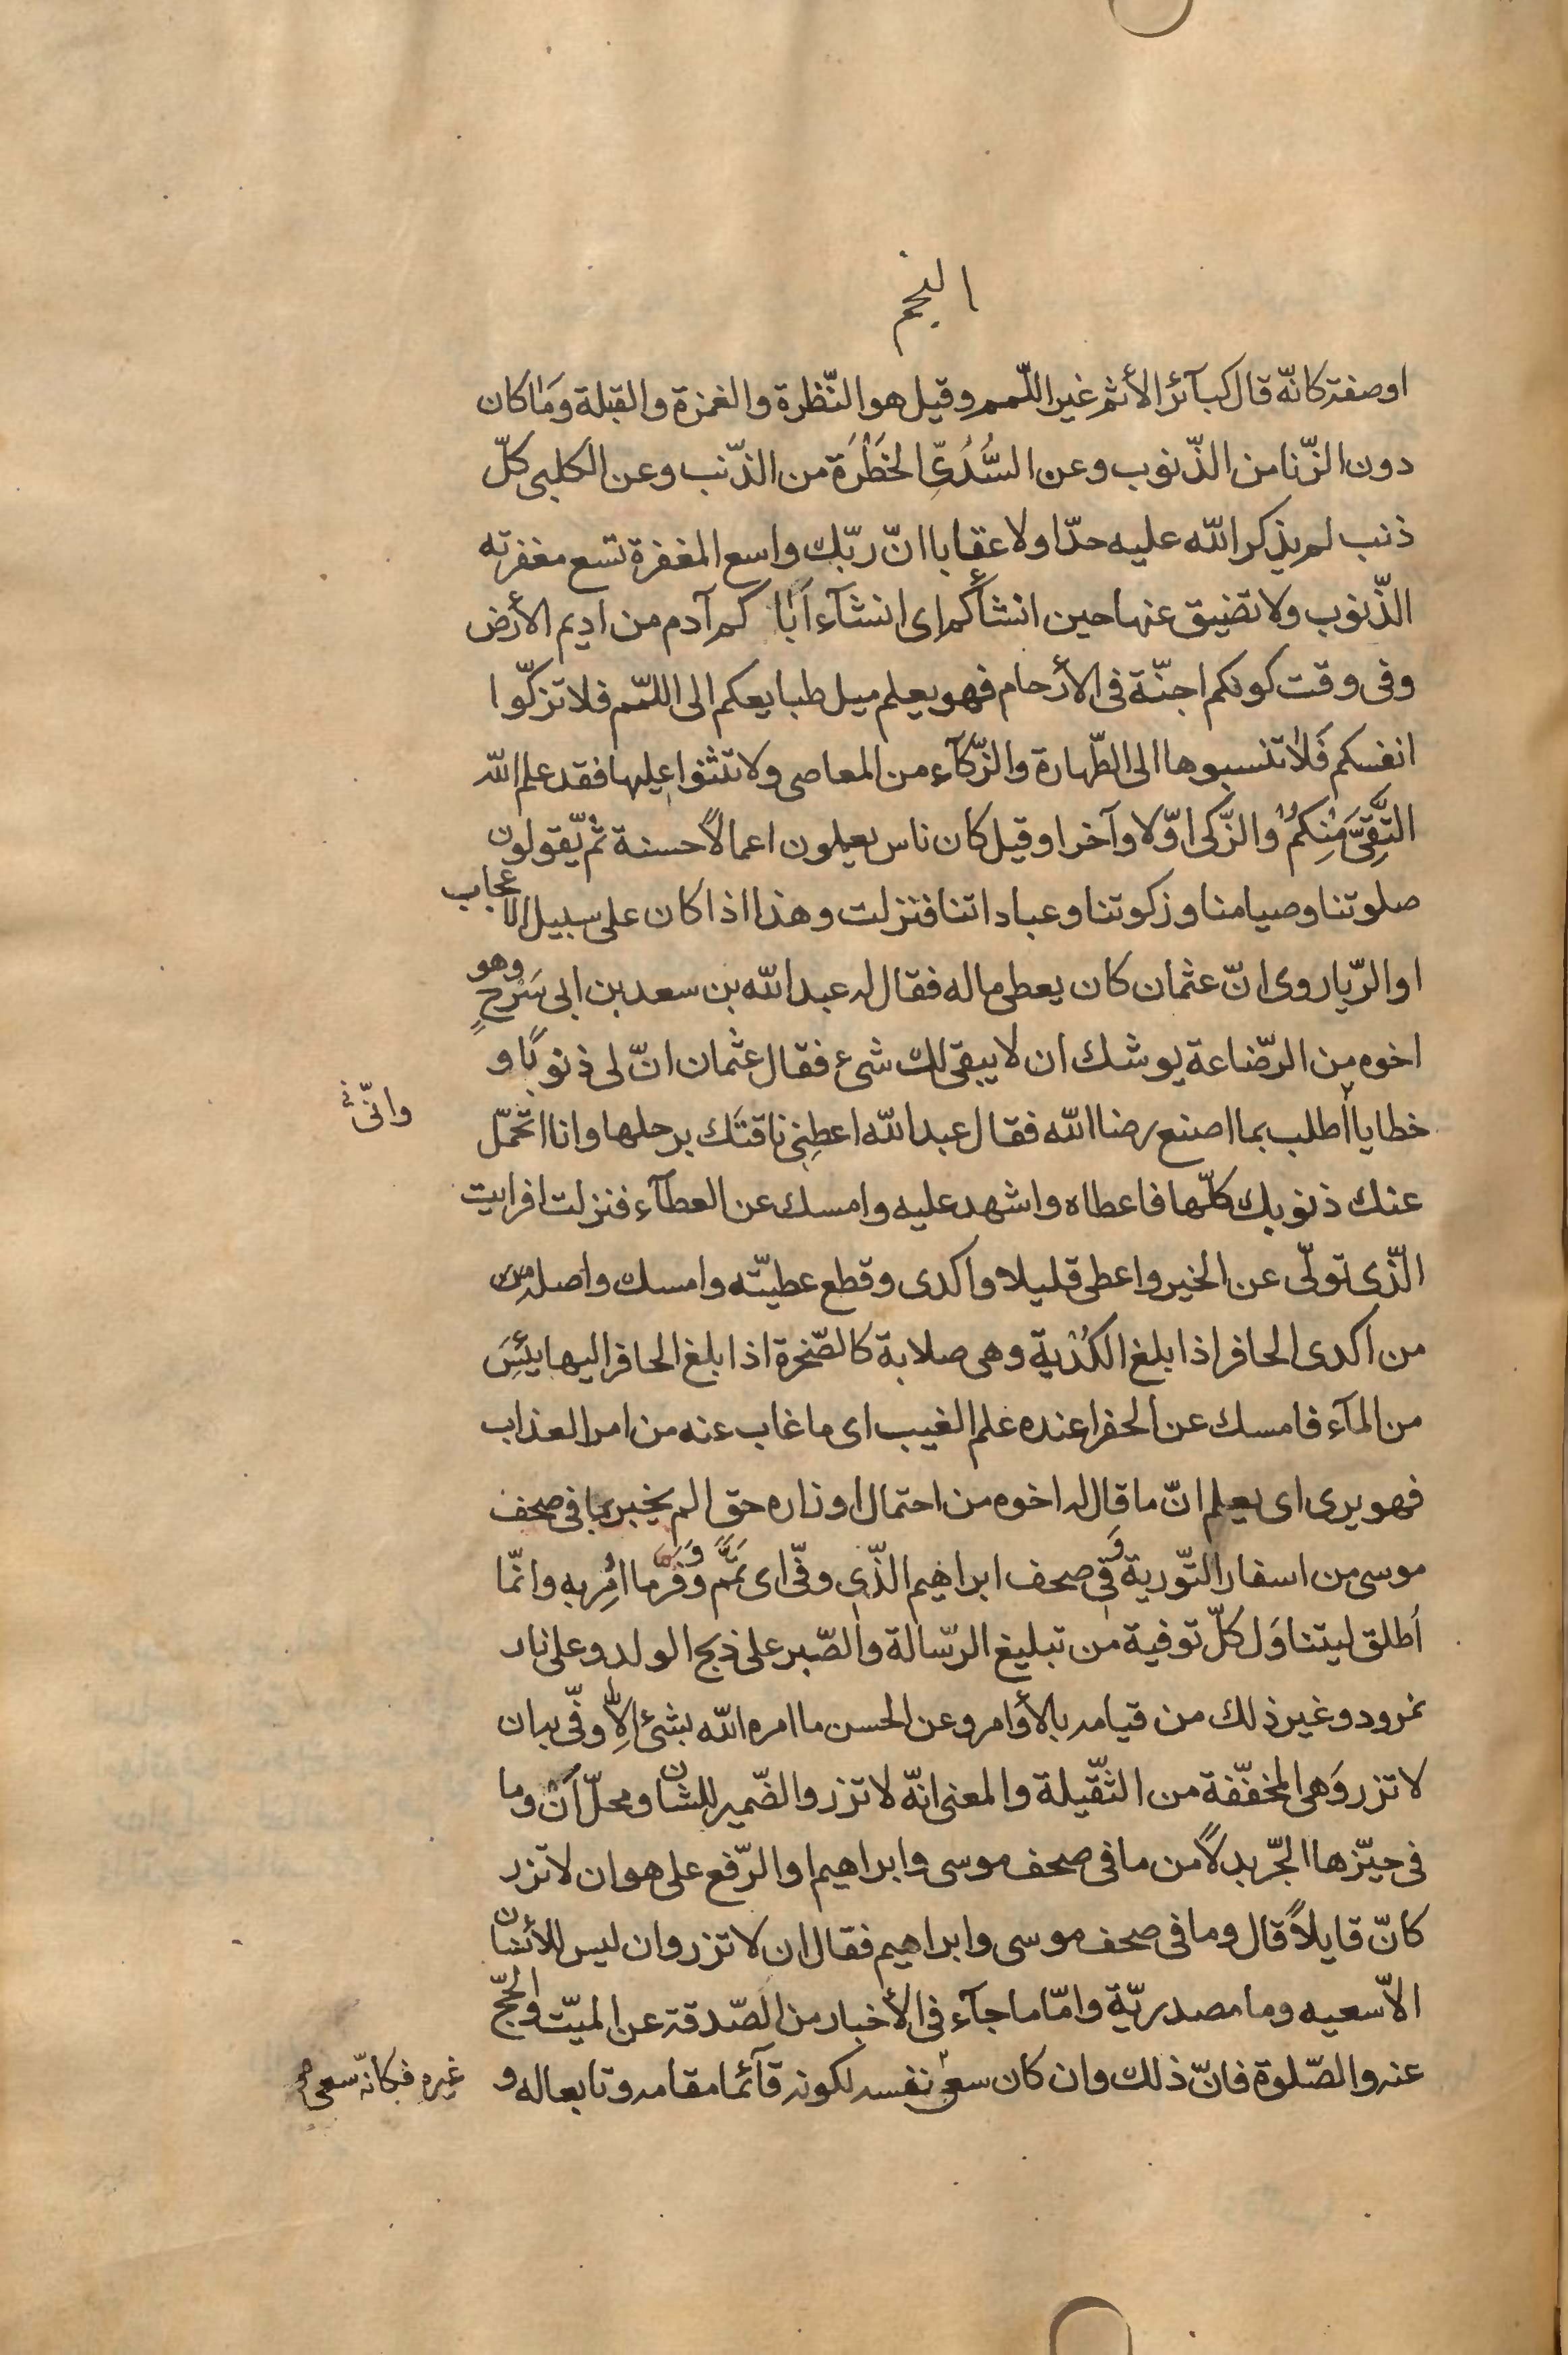 النجم
او صفة كانّه قال كبآئر الأثم غير اللّمم وقيل هو النّظرة والغمزة والقبلة وَمَا كان
دون الزّنا من الذّنوب وعن السُّدُىّ الخَطْرَة من الذّنب وعن الكلبى كلّ
ذنب لم يذكر الله عليه حدّا ولا عقابا انّ ربّك واسع المغفرة تسع مغفرته
الذّنوب ولا تضيق عنها حين انشأكم اى انشآء اَبَا كم آدم من اديم الأرض
وفى وقت كونكم اجنّة فى الأرحام فهو يعلم ميل طبايعكم الى اللمّم فلا تزكّوا
انفسكم فَلَا تنسبوها الى الطّهارة والزّكآء من المعاصى ولا تثنوا عليها فقد علم الله
التَّقِىَّ مِنْكُمْ والزّكى اوّلا وآخرا وقيل كان ناس يعملون اعمالاً حسنة ثمّ يّقولون
صلوتنا وصيامنا وزكوتنا وعباداتنا فنزلت وهذا اذا كان على سبيل الاعجاب
او الرّيا روى انّ عثمان كان يعطى ماله فقال له عبد الله بن سعد بن ابى سَرْحٍ وهو
اخوه من الرّضاعة يوشك ان لا يبقى لك شىء فقال عثمان انّ لى ذنوبًا و
خطايا اطلب بما اصنع رضا الله فقال عبد الله اعطِنى ناقتَك برحلها وانا اتحمّل
وانّى
عنك ذنوبك كلّها فاعطاه واشهد عليه وامسك عن العطآء فنزلت افرايت
الّذى تولّى عن الخير واعطى قليلا واكدى وقطع عطيّته وامسك واصله من
من اكدى الحافر اذا بلغ الكُدْية وهى صلابة كالصّخرة اذا بلغ الحافر اليها يئِسَ
من المآء فامسك عن الحفر اعنده علم الغيب اى ما غاب عنه من امر العذاب
فهو يرى اى يعلم انّ ما قال له اخوه من احتمال اوزاره حق الم يخبر بما فى صحف
موسى من اسفار التّورية وفى صحف ابراهيم الذّى وفّى اى تَمَّمَ وَوَفَّرَ ما اُمِر به وانّما
اُطلق ليتناوَل كلّ توفية من تبليغ الرّسالة والصّبر على ذبح الولد وعلى نار
نمرود وغير ذلك من قيامه بالأوامر وعن الحسن ما امره الله بشىء اِلَّا وفّى به ان
لا تزر وَهى المخفّفة من الثّقيلة والمعنى انّه لا تزر والضّمير للشان ومحلّ اَنْ وما
فى حيّزها الجّر بدلاً من ما فى صحف موسى وابراهيم او الرّفع على هو ان لا تزر
كانّ قايلاً قال وما فى صحف موسى وابراهيم فقال ان لا تزر وان ليس للأنسان
الاّ سعيه وما مصدريّة وامّا ما جآء فى الأخبار من الصّدقة عن الميّت والحّج
عنه والصّلوة فانّ ذلك وان كان سعى نفسه لكونه قآئما مقامه وتابعا له و
غيره فكانّه سعى